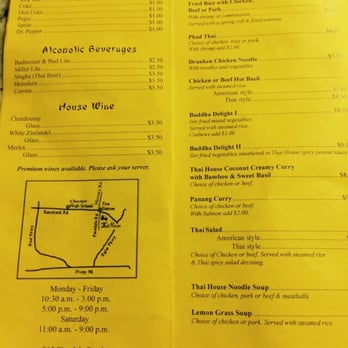 Coke $1.00
Diet Coke $1.00
Pepsi $1.00
Sprite $1.00
Dr. Pepper $1.00
Alcoholic Beverages
Budweiser & Bud Lite $2.50
Miller Lite $2.50
Singha (Thai Beer) $3.50
Heineken $3.50
Corona $3.50
House Wine
Chardonnay
Glass $3.50
White Zinfandel
Glass $3.50
Merlot
Glass $3.50
Premium wines available. Please ask your server.
High School
Monday - Friday
10:30 a.m. - 3:00 p.m.
5:00 p.m. - 9:00 p.m.
Saturday
11:00 a.m. - 9:00 p.m.
Fried Rice with Chicken,
Beef or Pork
With shrimp or combination
Served with a spring roll & fried wontons
Phad Thai
Choice of chicken, beef or pork.
With shrimp add $2.00.
Drunken Chicken Noodle
With noodles and vegetables
Chicken or Beef Hot Basil
Served with steamed rice.
American style
Thai style
Buddha Delight I
Stir fried mixed vegetables
Served with steamed rice.
Cashews add $1.00.
Buddha Delight II
Stir fried vegetables smothered in Thai House spicy peanut sauce
Thai House Coconut Creamy Curry
with Bamboo & Sweet Basil
Choice of chicken or beef.
Panang Curry
Choice of chicken or beef.
With Salmon add $2.00.
Thai Salad
American style
Thai style
Choice of Chicken or Beef. Served with steamed rice
& Thai spicy salad dressing.
Thai House Noodle Soup
Choice of chicken, pork or beef & meatballs.
Lemon Grass Soup
Choice of chicken or pork. Served with steamed rice.